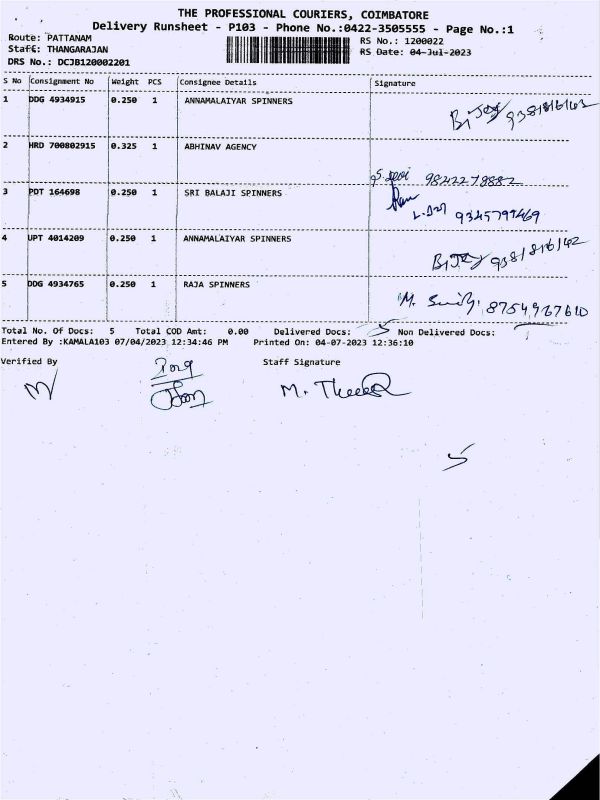 THE PROFESSIONAL COURIERS, COIMBATORE
Delivery Runsheet - P103 - Phone No.:0422-3505555 - Page No.:1
Route: PATTANAM
RS No.: 1200022
Staff: THANGARAJAN
RS Date: 04-Jul-2023
DRS No.: DCJB120002201
S No Consignment No Weight PCS Consignee Details Signature
1 DDG 4934915 0.250 1 ANNAMALAIYAR SPINNERS
2 HRD 700802915 0.325 1 ABHINAV AGENCY
9842278882
3 PDT 164698 0.250 1 SRI BALAJI SPINNERS
9345794469
4 UPT 4014209 0.250 1 ANNAMALAIYAR SPINNERS
5 DDG 4934765 0.250 1 RAJA SPINNERS
8754967610
Total No. Of Docs: 5 Total COD Amt: 0.00 Delivered Docs: 5 Non Delivered Docs:
Entered By :KAMALA103 07/04/2023 12:34:46 PM Printed On: 04-07-2023 12:36:10
Verified By Staff Signature
5